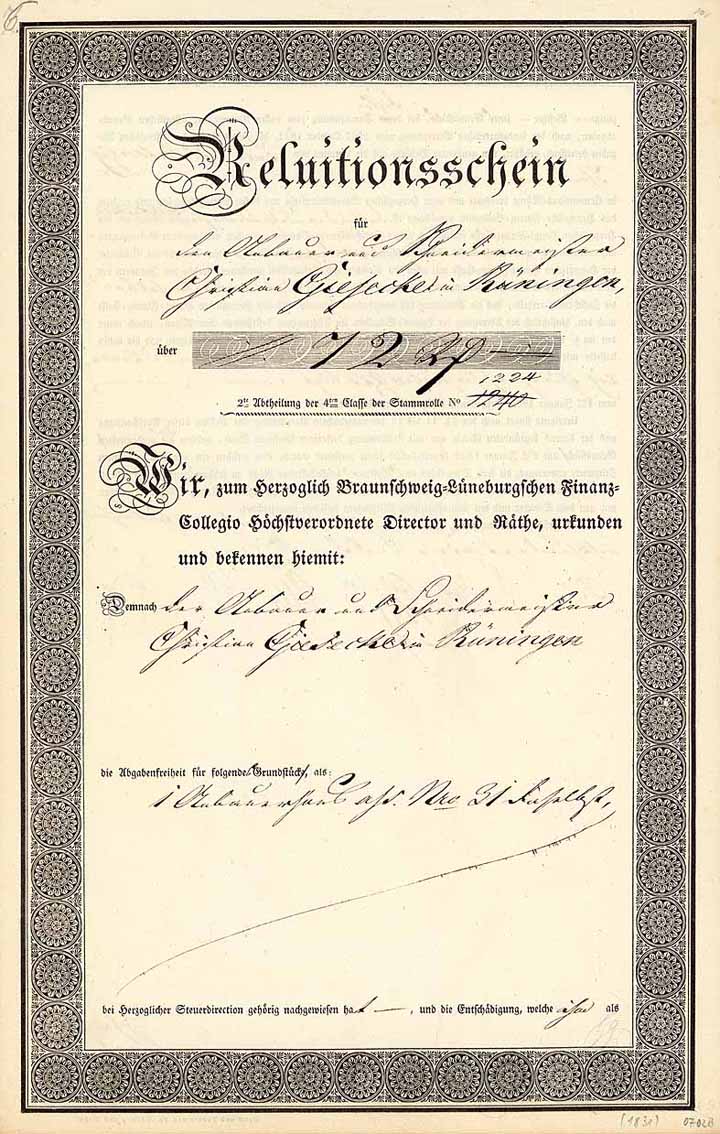 Reluitionsschein
für
den Anbauer und Schneidermeister
Christian Giesecke in Rüningen,
über 72
1224
2te Abtheilung der 4ten Classe der Stammrolle No 1240
Wir, zum Herzoglich Braunschweig-Lüneburgschen Finanz-
Collegio Höchstverordnete Director und Räthe, urkunden
und bekennen hiemit:
Demnach der Anbauer und Schneidermeister
Christian Giesecke in Rüningen
die Abgabenfreiheit für folgende Grundstück, als:
1 Anbauerhaus Nro 31 daselbst,
bei Herzoglicher Steuerdirection gehörig nachgewiesen hat —, und die Entschädigung, welche ihm als
(1831) 0702B